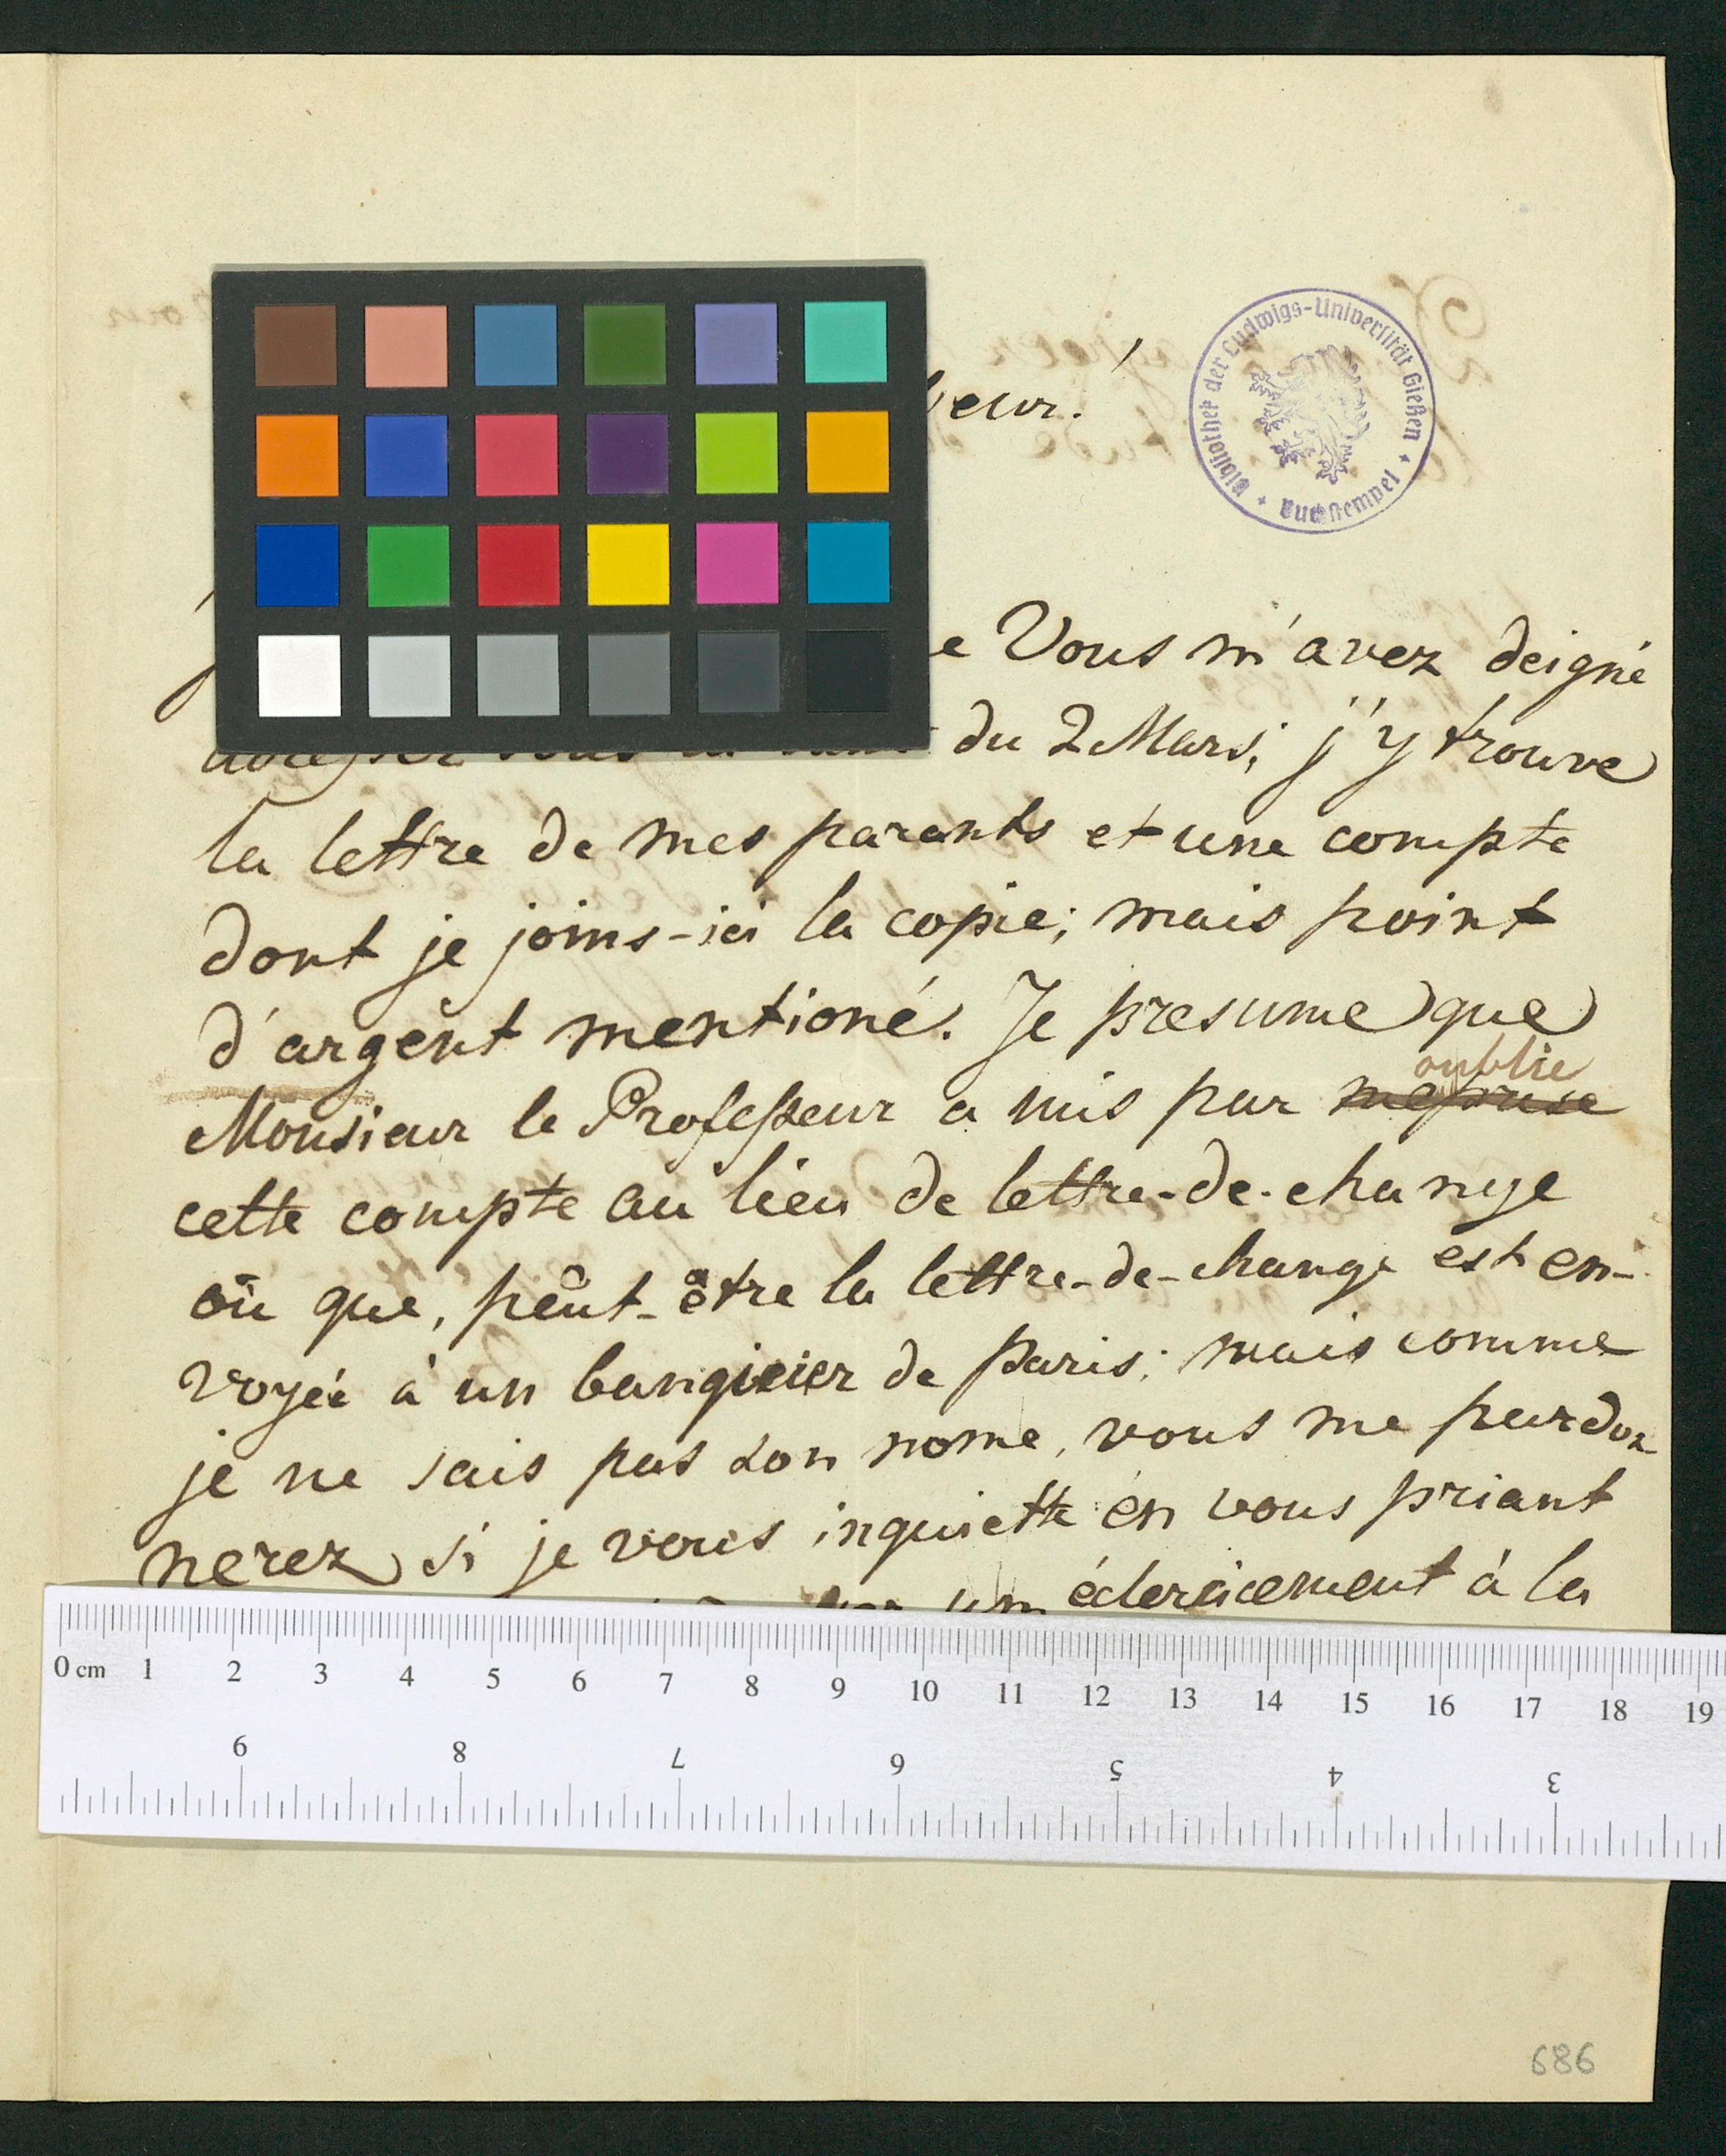 Bibliothek der Ludwigs-Universität Gießen + Buchstempel +
Vous m'avez deigné
du 2 Mars; j'y trouve
la lettre de mes parants et une compte
dont je joins-ici la copie; mais point
d'argent mentioné. Je presume que
oublie
Monsieur le Professeur a mis par meprise
cette compte au lieu de lettre-de-change
où que, peût-être la lettre-de-change est en-
voyée à un banquier de Paris; mais comme
je ne sais pas son nome, vous me pardon
nerez si je vous inquiette en vous priant
un à la
0 cm 1 2 3 4 5 6 7 8 9 10 11 12 13 14 15 16 17 18 19
9 8 7 6 5 4 3
686